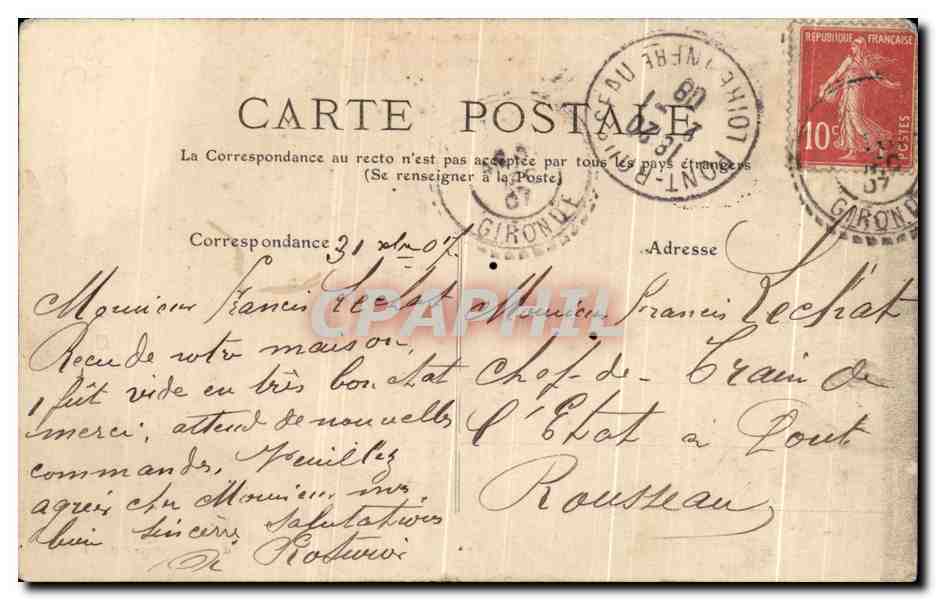 RÉPUBLIQUE FRANÇAISE
10c POSTES
LOIRE INFRE
08
07
GIRONDE
07
GIRONDE
CARTE POSTALE
La Correspondance au recto n'est pas acceptée par tous les pays étrangers
(Se renseigner à la Poste)
Correspondance
31 xbre 07
Monsieur Francis Lechat
Recu de votre maison,
1 fût vide en très bon état
merci, attend de nouvelles
commandes, Veuillez
agréer cher Monsieur mes
bien sincères salutations
Adresse
Monsieur Francis Lechat
Chef-de-Train de
l'Etat à Pont
Rousseau
CPAPHIL